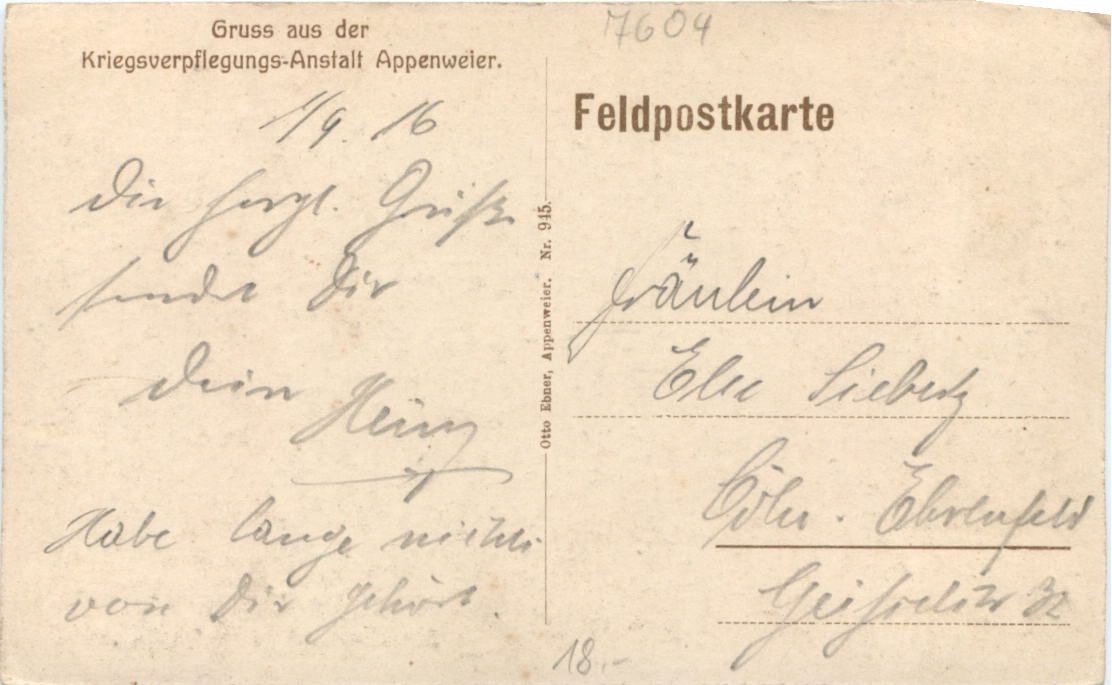 Gruss aus der
Kriegsverpflegungs-Anstalt Appenweier.
1/9. 16
Die herzl. Grüße
sendet Dir
Dein
Heinz
Habe lange nichts
von Dir gehört.
Otto Ebner, Appenweier. Nr. 945.
7604
Feldpostkarte
Fräulein
Else Siebertz
Cöln-Ehrenfeld
32
18.-